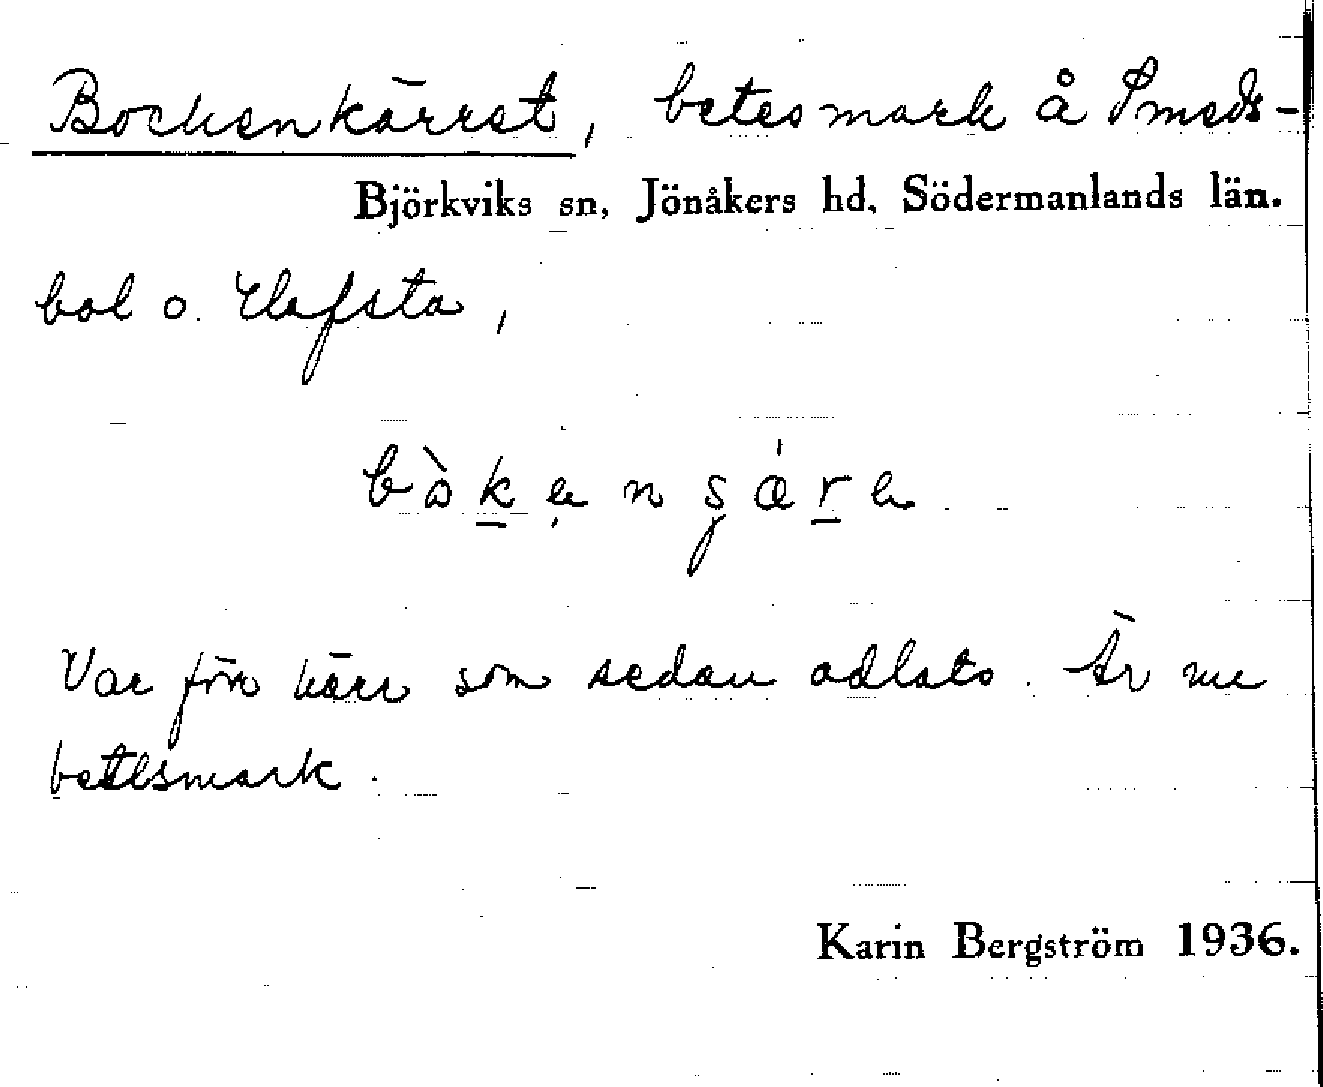 Bockenkärret, betesmark å Smeds-
Björkviks sn, Jönåkers hd, Södermanlands län.
bol o. Elofsta,
Var förr kärr som sedan odlats. Är nu
betesmark.
Karin Bergström 1936.